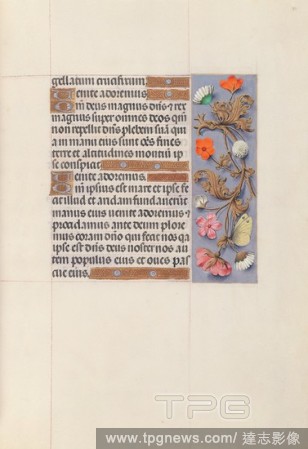 gellatum crucifixum.
Venite adoremus.
Qm deus magnus dns & rex
magnus super omnes deos qm
non repellit dns plebem suā qui
a in manu eius sunt oēs fines
terre et altitudines montiū ip
se conspicit.
Venite adoremus.
Qm ipsius est mare et ipse fe
cit illud et aridam fundaverūt
manus eius venite adoremus &
procidamus ante deum plore
mus coram dno qui fecit nos qa
ipse est dns deus noster nos au
tem populus eius et oves pas
cue eius.
TPG
www.tpgnews.com/ 達志影像